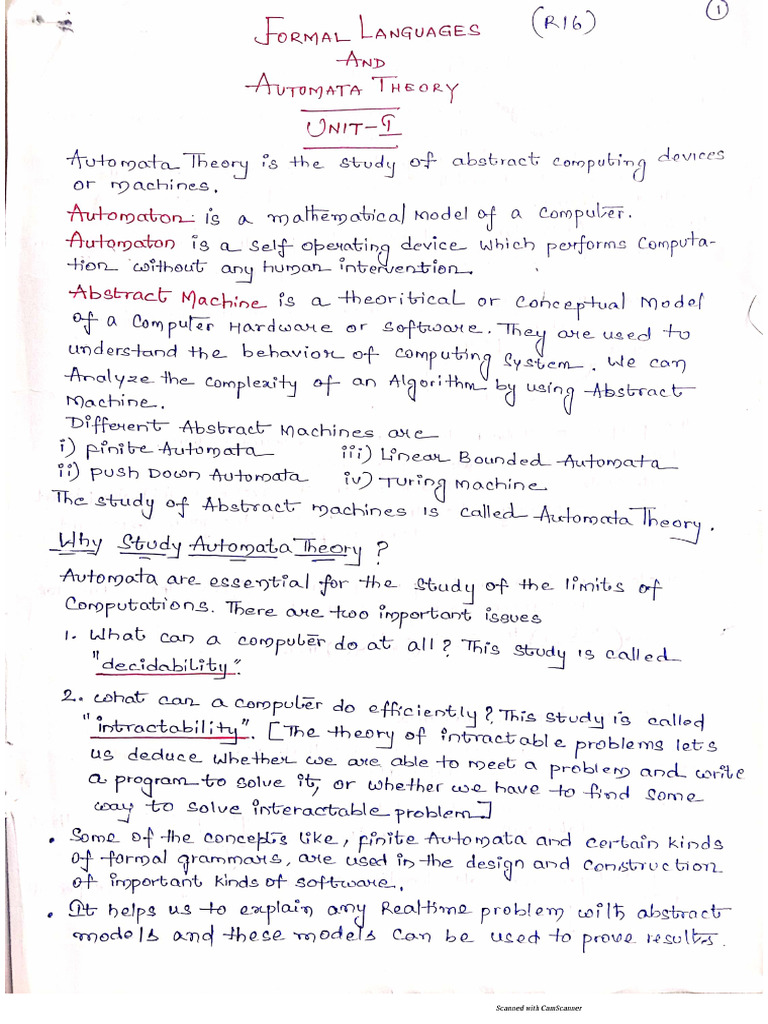 1
FORMAL LANGUAGES (R16)
AND
AUTOMATA THEORY
UNIT-I
Automata Theory is the study of abstract computing devices
or machines.
Automaton is a mathematical Model of a Computer.
Automaton is a self operating device which performs Computa-
tion without any human intervention.
Abstract Machine is a theoritical or conceptual Model
of a Computer Hardware or software. They are used to
understand the behavior of computing system. We can
Analyze the complexity of an Algorithm by using Abstract
Machine.
Different Abstract Machines are
i) Finite Automata iii) Linear Bounded Automata
ii) Push Down Automata iv) Turing Machine
The study of Abstract machines is called Automata Theory.
Why Study Automata Theory?
Automata are essential for the study of the limits of
Computations. There are two important issues
1. What can a computer do at all? This study is called
"decidability".
2. What can a computer do efficiently? This study is called
"intractability". [The theory of intractable problems lets
us deduce whether we are able to meet a problem and write
a program to solve it, or whether we have to find some
way to solve interactable problem]
• Some of the concepts like, finite Automata and certain kinds
of formal grammars, are used in the design and construction
of important kinds of software.
• It helps us to explain any Realtime problem with abstract
models and these models can be used to prove results.
Scanned with CamScanner